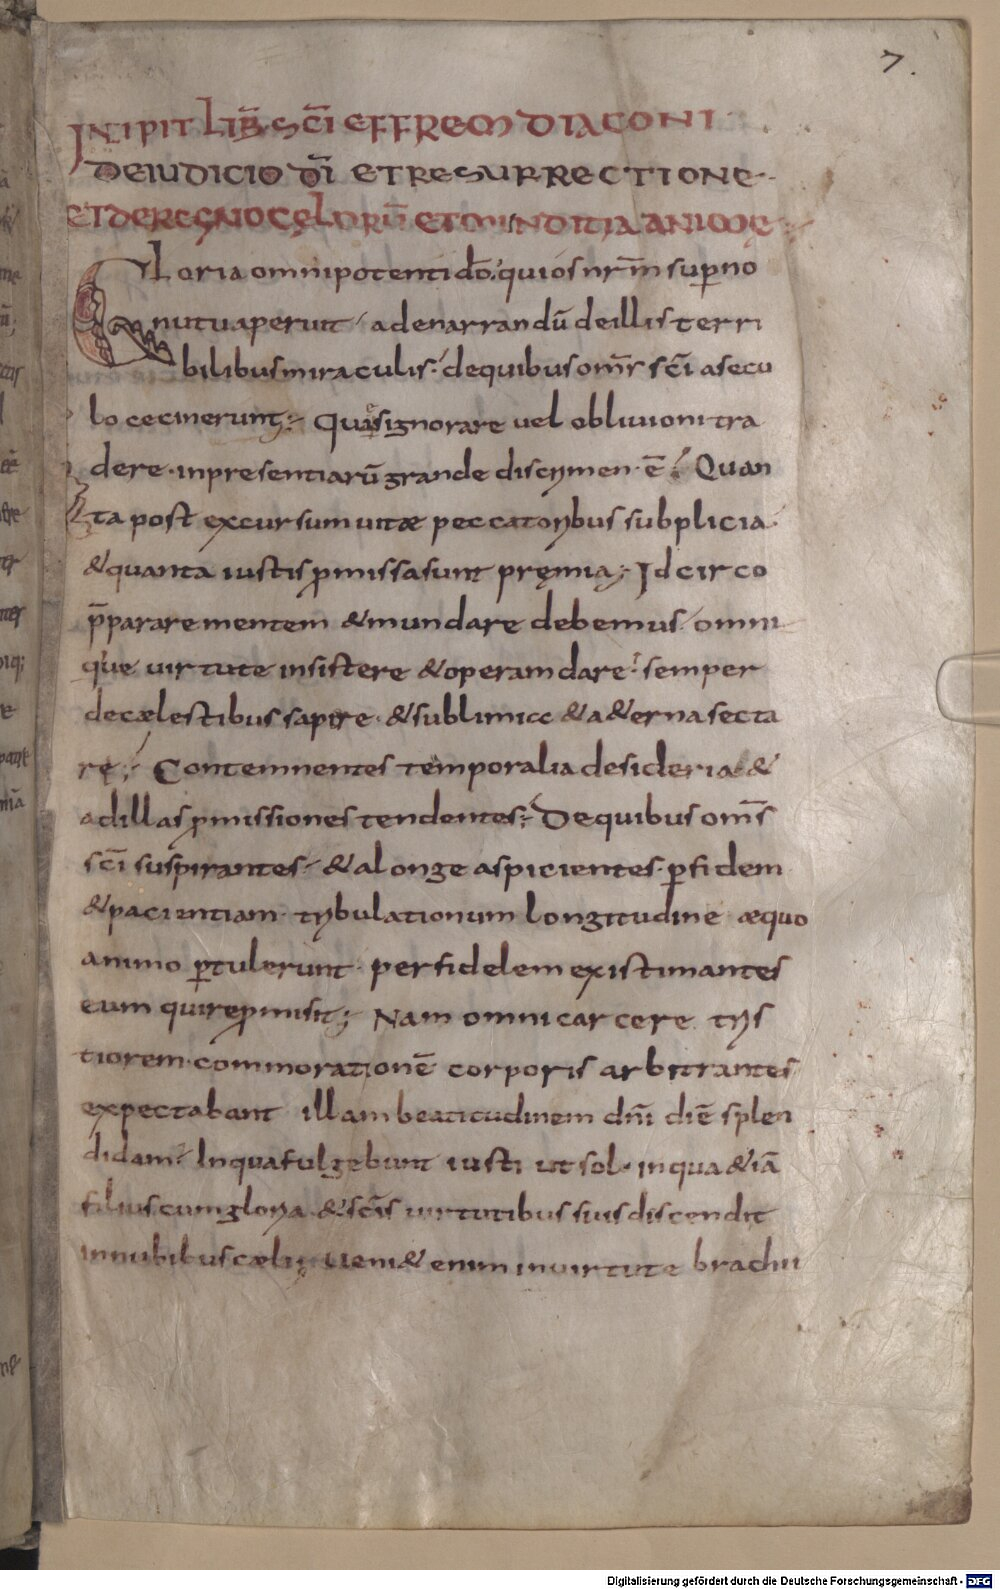 7.
INCIPIT LIB̄ SC̄I EFFREM DIACONI
DE IUDICIO DĪ ET RESURRECTIONE
ET DE REGNO CĘLORŪ ET MUNDITIA ANIMĘ
Gloria omnipotenti dō. qui os nr̄m superno
nutu aperuit. ad enarrandū de illis terri
bilibus miraculis. de quibus om̄s sc̄i a secu
lo cecinerunt; Quas ignorare vel oblivioni tra
dere. in presentiarū grande discrimen. ē. Quan
ta post excursum uitæ peccatoribus subplicia.
& quanta iustis p̄missa sunt pręmia; Idcirco
p̄parare mentem & mundare debemus. omni
que uirtute insistere & operam dare. semper
de cælestibus sapere. & sublimia & a&erna secta
re; Contemnentes temporalia desideria. &
ad illas promissiones tendentes; De quibus om̄s
sc̄i suspirantes. & a longe aspicientes. per fidem
& pacientiam. tribulationum longitudine æquo
animo pertulerunt. per fidelem existimantes
eum qui repromisit; Nam omni carcere tris
tiorem. commorationē corporis arbitrantes
expectabant illam beatitudinem dn̄i diē splen
didam. In qua fulgebunt iusti ut sol. in qua &iā
filius cum gloria. & sc̄is uirtutibus suis discendit
in nubibus cæli; ueni& enim in uirtute brachii
Digitalisierung gefördert durch die Deutsche Forschungsgemeinschaft - DFG